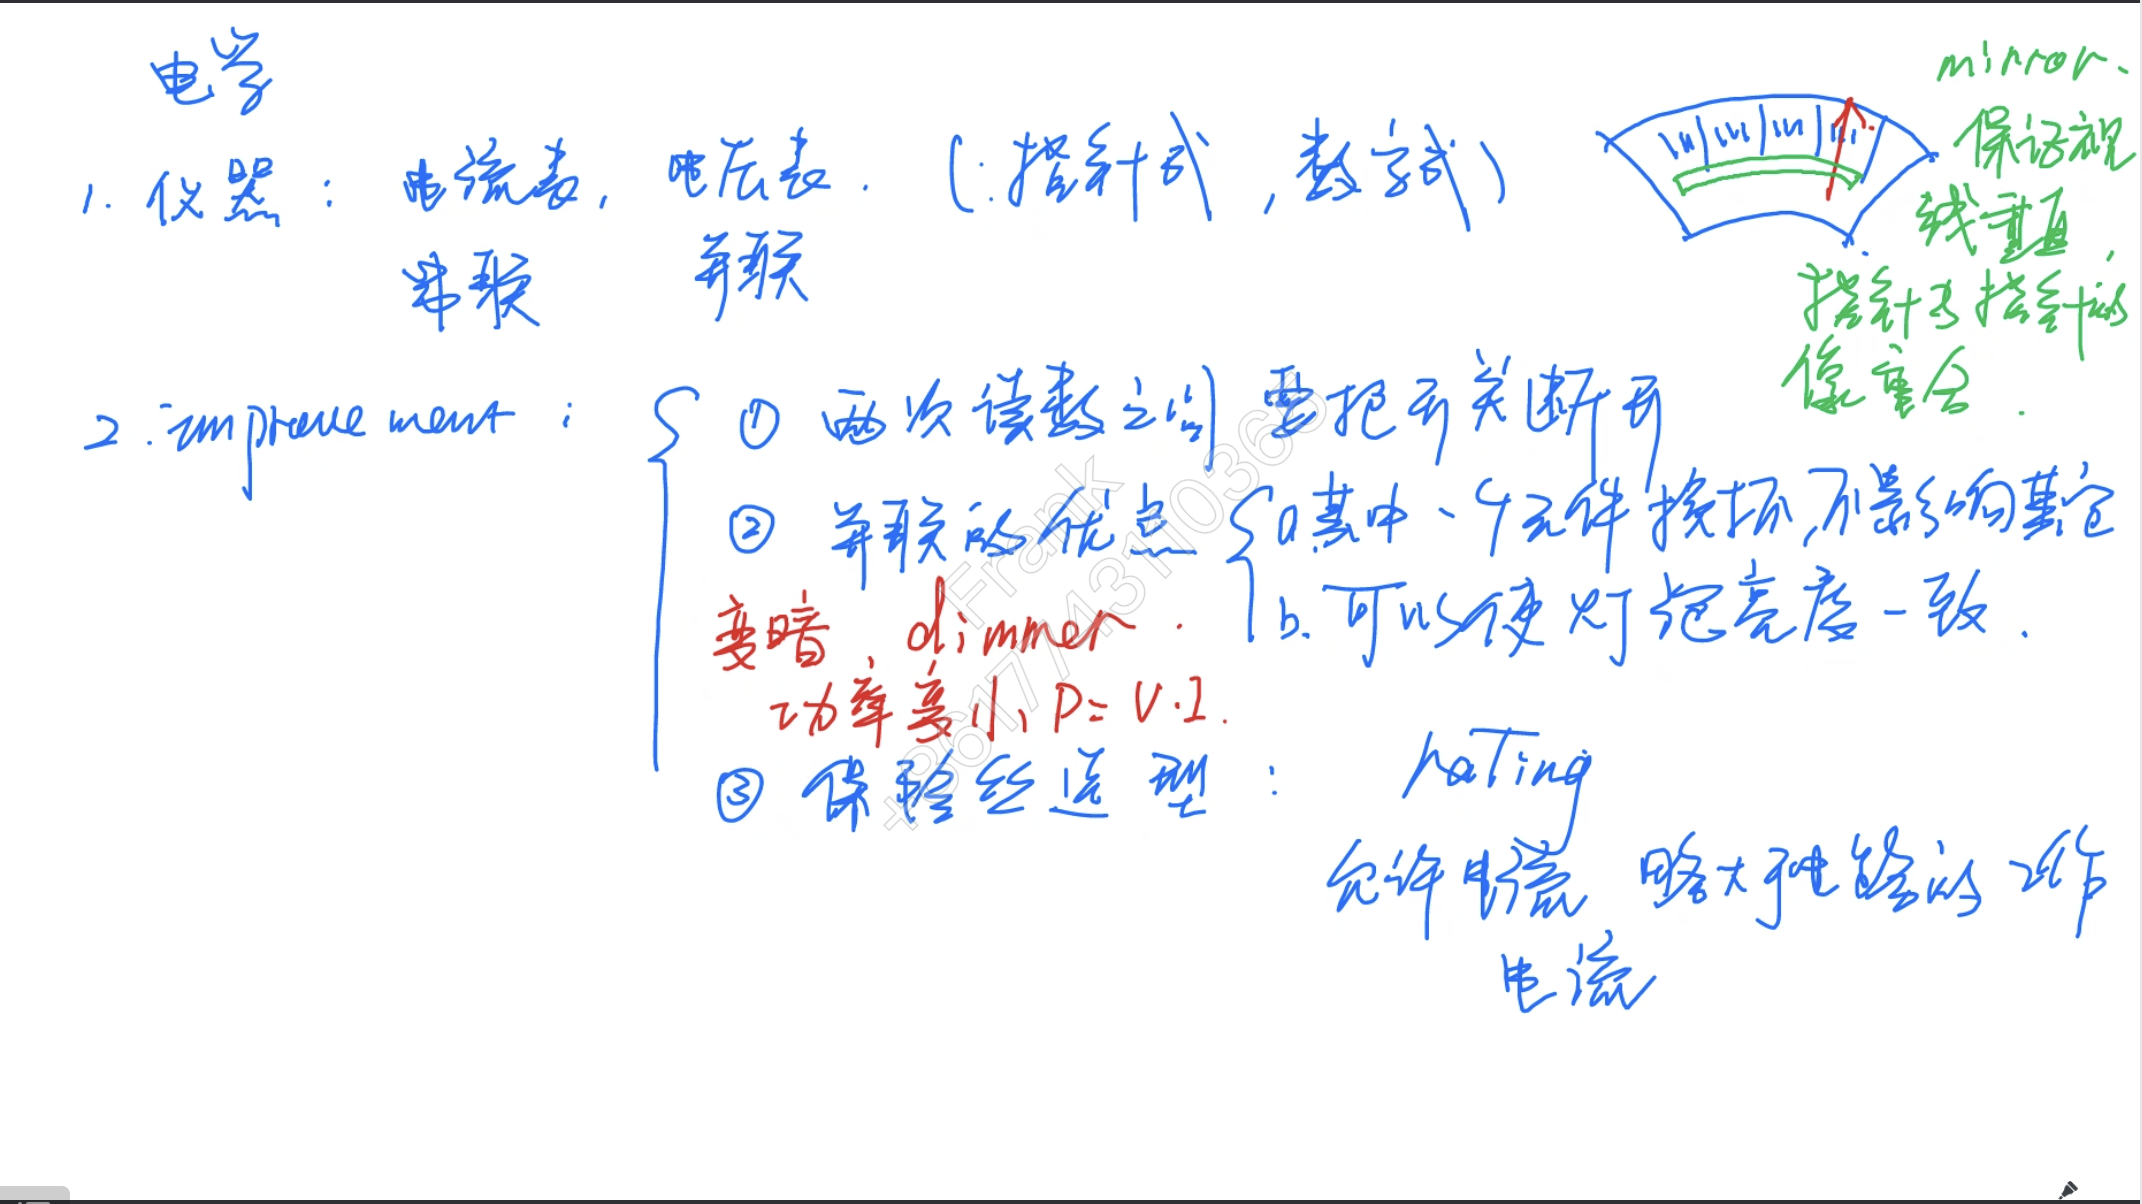 电学
1. 仪器: 电流表, 电压表. (: 指针式, 数字式)
串联 并联
mirror.
保证视
线垂直,
指针与指针的
像重合.
2. improvement:
① 两次读数之间要把开关断开
② 并联的优点
a 其中一个元件损坏,不影响其它
b. 可以使灯泡亮度一致.
变暗 dimmer.
功率变小, P = V·I.
③ 保险丝选型: rating
允许电流 略大于电路的工作
电流
Frank
+8617743110368